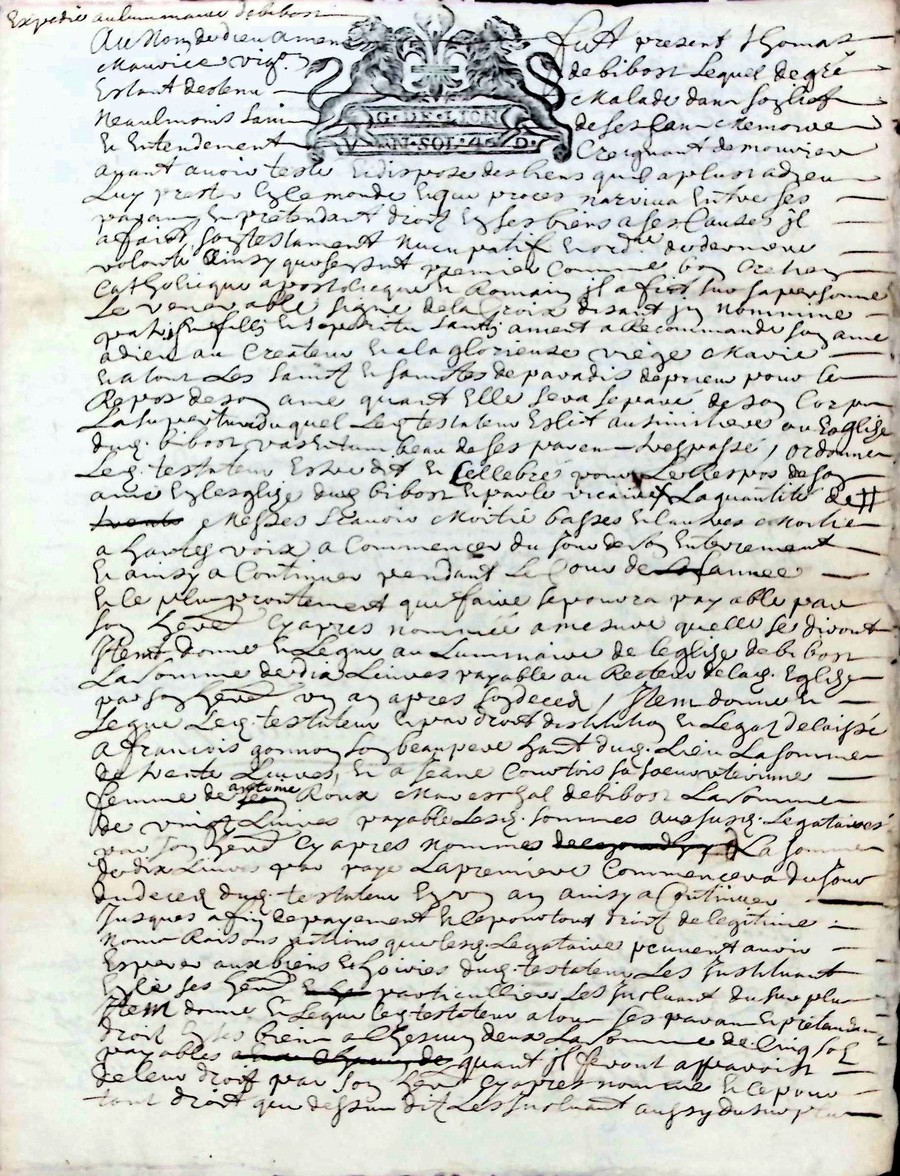 Expedié au luminaire de bibost
Au Nom de dieu amen fut present thomas
Maurice vigr. de bibost Lequel de gré
Estant detenu Malade dans son lict
Neaulmoins sain de ses sans Memoire
Et Entendement Creignant de mourir
G. DE. LION
N. SOL. 4. D.
avant avoir testé Et dispose des biens quil a plust a dieu
Luy prester En le monde Et que proces narriva Entre ses
parans Et pretendant droit En ses biens a ses Causes Il
a faict son testament nuncupatif Et ordre de derniere
volonté Ainsy que sensuit premier Comme bon Cretien
Catholicque apostolicque Et Romain il a fict sur sa personne
Le venerable signe de la Croix disant In nommine
patris Et filli Et speritu santi ament a Recommandé son ame
a dieu au Createur Et a la glorieuse viége Marie
Et a tout Les saints Et saintes de paradis de prier pour le
Repos de son ame quant Elle sera separé de son Corps
La sepurture duquel Led. testateur Eslit au simistiere ou Esglise
dud. bibost vas Et tumbeau de ses parens trespassé / ordonne
Led. testateur Estre dit Et Cellebré pour Le Respos de son
ame En lesglise dud. bibost Et par le vicaire La quantité de #
trente Messes scavoir Moitié basses Et lautres Moitie
a hautes voix a Commencer du jour de son Enterrement
Et ainsy a Continuer pendant le Cour de La lannee
Et le plus prontement que faire se pourra payable par
son here Cy apres nommée a mesure quelle se diront
Item donne Et Legue au Luminaire de leglise de bibost
La somme de dix Livres payable au Recteur de lad. Eglise
par son here un an apres son deced / Item donne Et
Legue Led. testateur Et par droit distitution Et Legat delaissé
a francois gonnon son beau pere dud. Lieu La somme
de trente Livres, Et a Jeane Courtois sa soeur uterinne
femme de antoine Roux Mareschal de bibost La somme
de vingt Livres payable Lesd. sommes aux susd. Legataires
par son here Cy apres nommes La somme
de dix Livres par paye La premiere Commencera du jour
du deced dud. testateur En un an ainsy a Continuer
Jusques a fin de payement Et le pour tous droict de legitime
noms Raisons actions que lesd. Legataire peuvent avoir
Esperer aux biens Et hoiries dud. testateur Les Instituant
En ce ses here particulliers Les Incluant du surplus
Item donne Et Legue led. testateur a tous ses parans Et pretendans
droit En ses biens a Chescun deux La somme de Cinq sols
payables quant Il seront apparoistre
de leur droit par son here Cy apres nommé Et ce pour
tout droit que dessus dit Les Incluant aussy du surplus